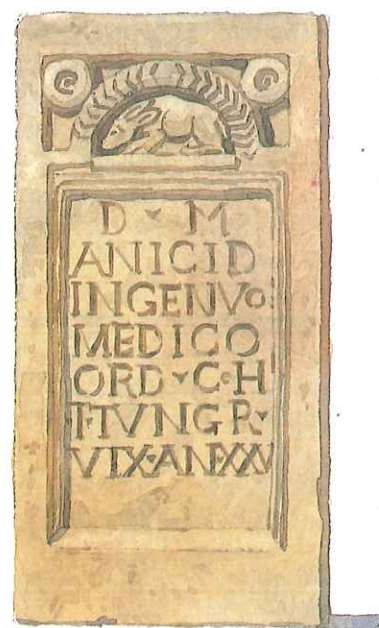 D ▾ M
ANICID
INGENVO
MEDICO
ORD ▾ C·H
T·TVNGR▾
VIX·ANXXV